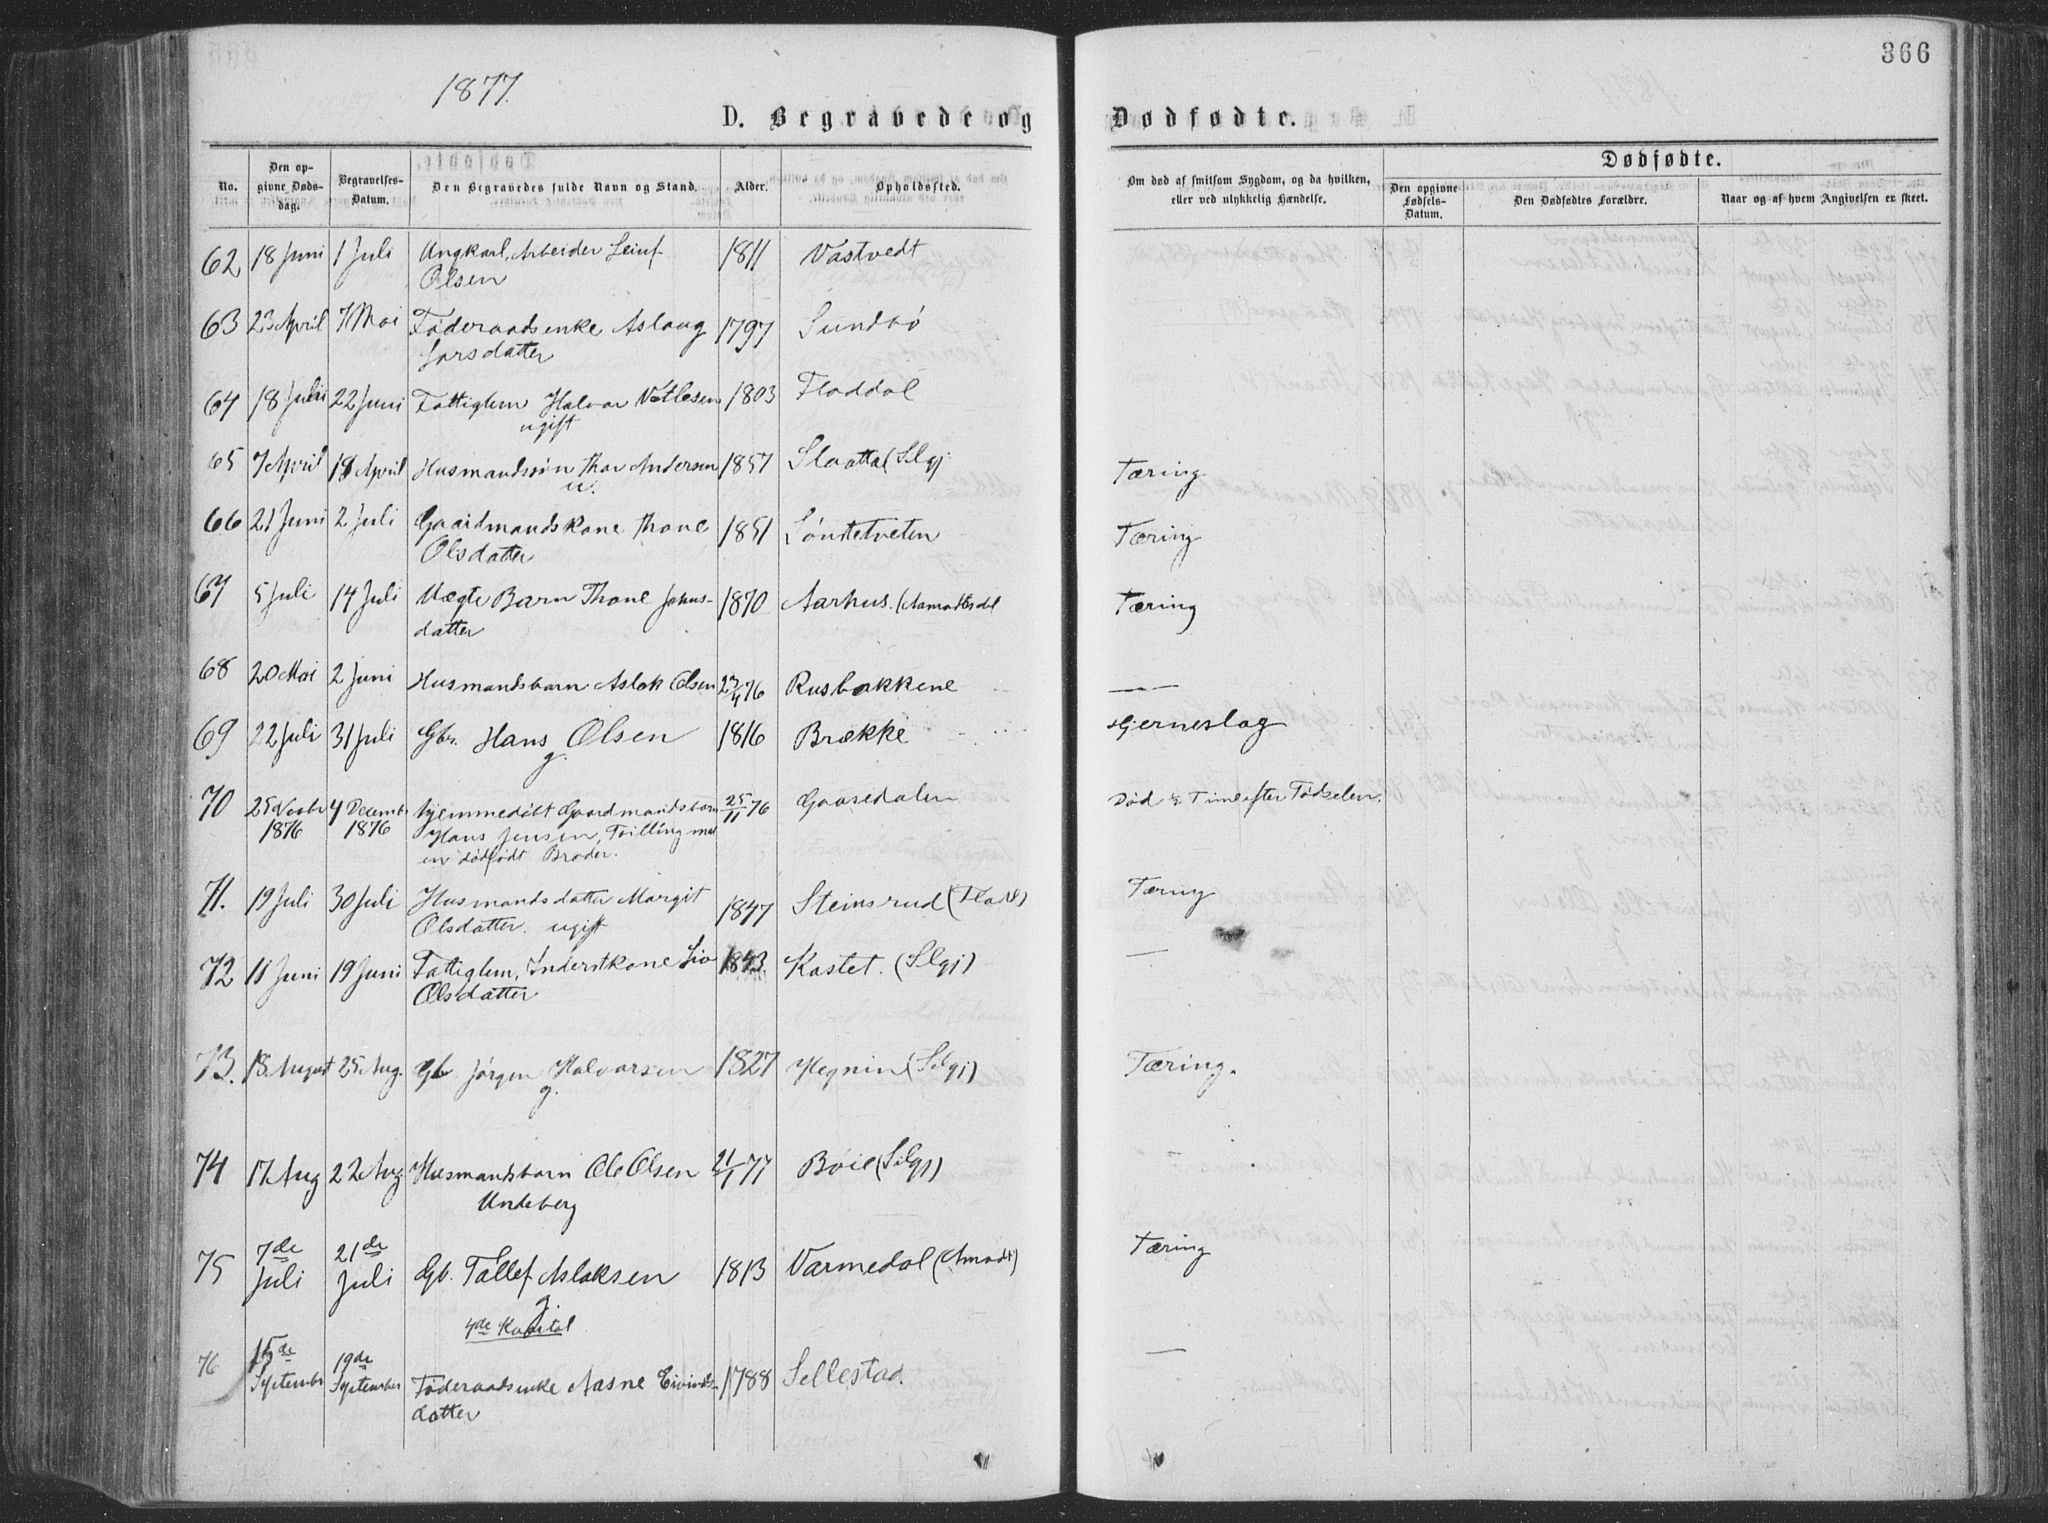 366
1877.
D. Begravede og Dødfødte.
No. Den opgivne Dødsdag. Begravelses-Datum. Den Begravedes fulde Navn og Stand. Alder. Opholdssted. Om død af smitsom Sygdom, og da hvilken, eller ved ulykkelig Hændelse. Dødfødte. Den opgivne Fødsels-Datum. Den Dødfødtes Forældre. Naar og af hvem Angivelsen er skeet.
62 18 Juni 1 Juli Ungkarl, Arbeider Leiuf 1811 Vastvedt
Olsen
63 23 April 7 Mai Føderaadsenke Aslaug 1797 Sundbø
Larsdatter
64 18 22 Juni Fattiglem Halvor Vetlesen 1803 Floddal
ugift
65 7 April 18 April Husmandssøn Thor Andersen 1857 Slaatta (Selgj. Tæring
u.
66 21 Juni 2 Juli Gaardmandskone Thone 1851 Tæring
Olsdatter
67 5 Juli 14 Juli Uægte Barn Thone Johns- 1870 Aarhus. (Aamotsdal Tæring
datter
68 20 Mai 2 Juni Husmandsbarn Aslak Olsen 76 Rusbakkene —
69 22 Juli 31 Juli Gbr. Hans Olsen 1816 Brække Hjerneslag
g.
70 25 Novbr 4 Decemb. Hjemmedøbt Gaardmandsbarn 25/11 76 Gaasedalen Død ½ Time efter Fødselen.
1876 1876 Hans Jensen, Tvilling med
en dødfødt Broder.
71. 19 Juli 30 Juli Husmandsdatter Margit 1847 Steinsrud (Flatd) Tæring
Olsdatter. ugift
72 11 Juni 19 Juni Fattiglem, Inderstkone Liv 1843. Kastet. (Selgj) —
Olsdatter
73. 18 August 25 Aug. Gb. Jørgen Halvorsen 1827 Hegnin (Selgj) Tæring.
g.
74 17 Aug 22 Aug. Husmandsbarn Ole Olsen 21/1 77 Bøie (Selgj)
Undeberg
75 7de Juli 21de Juli Gb. Tallef Aslaksen 1813 Varmedal (Amodt) Tæring
g.
4de Kvartal
76 15de September 19de September Føderaadsenke Aasne Eivinds- 1788 Sellestad. —
datter